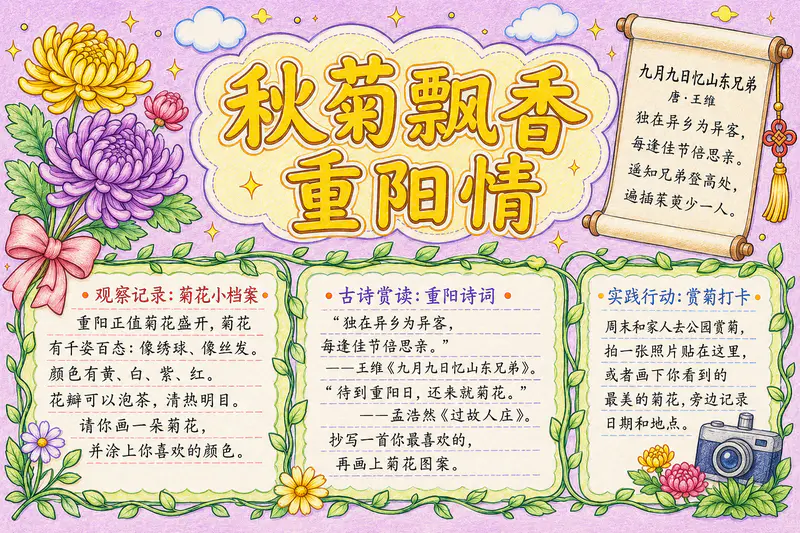 秋菊飘香
重阳情
九月九日忆山东兄弟
唐·王维
独在异乡为异客，
每逢佳节倍思亲。
遥知兄弟登高处，
遍插茱萸少一人。
观察记录：菊花小档案
重阳正值菊花盛开，菊花
有千姿百态：像绣球、像丝发。
颜色有黄、白、紫、红。
花瓣可以泡茶，清热明目。
请你画一朵菊花，
并涂上你喜欢的颜色。
古诗赏读：重阳诗词
“独在异乡为异客，
每逢佳节倍思亲。”
——王维《九月九日忆山东兄弟》。
“待到重阳日，还来就菊花。”
——孟浩然《过故人庄》。
抄写一首你最喜欢的，
再画上菊花图案。
实践行动：赏菊打卡
周末和家人去公园赏菊，
拍一张照片贴在这里，
或者画下你看到的
最美的菊花，旁边记录
日期和地点。